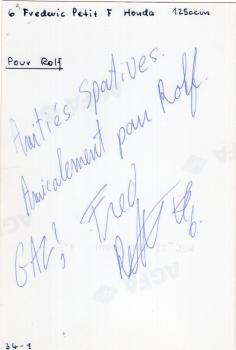 6 Frederic Petit F Honda 125ccm
Pour Rolf
Amitiés Sportives.
Amicalement pour Rolf.
GAZ! Fred
6.
AGFA
AGFA
34-1